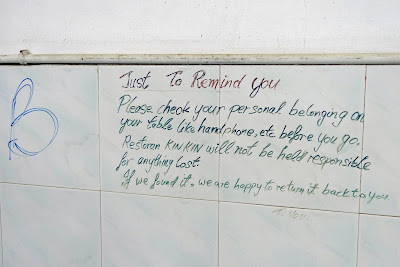 Just To Remind you
B
Please check your personal belonging on
your table like handphone, etc before you go.
Restoran KIN KIN will not be held responsible
for anything lost
If we found it, we are happy to return it back to you